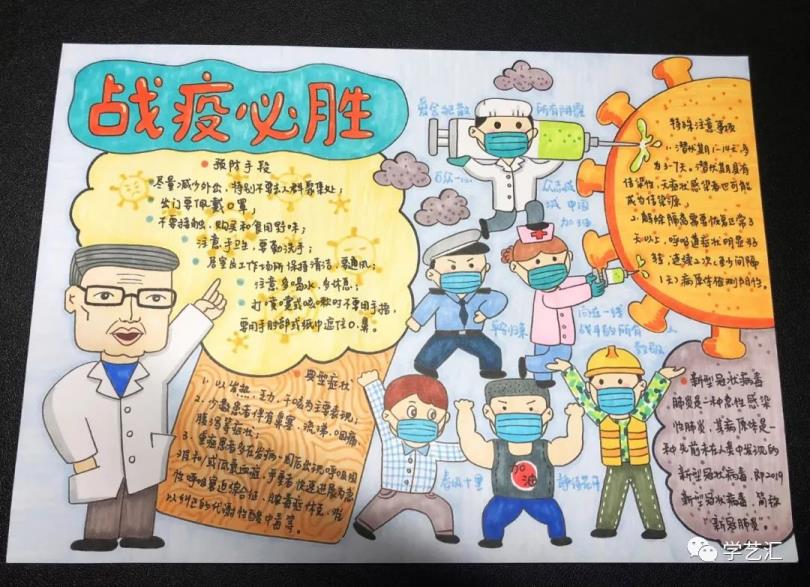 战疫必胜
预防手段
尽量减少外出，特别不要去人群聚集处；
出门要佩戴口罩；
不要接触、购买和食用野味；
注意手卫生，要勤洗手；
居室及工作场所保持清洁，要通风；
注意多喝水，多休息；
打喷嚏或咳嗽时不要用手捂，
要用手肘部或纸巾遮住口、鼻。
典型症状
1. 以发热、乏力、干咳为主要表现；
2. 少数患者伴有鼻塞、流涕、咽痛
腹泻等症状；
3. 重症患者多在发病一周后出现呼吸困
难和/或低氧血症，严重者快速进展为急
性呼吸窘迫综合征、脓毒症休克、难
以纠正的代谢性酸中毒等。
爱会把散
所有阴霾
万众一心
众志成
城 中国
加油
平安归来
向在一线
战斗的所有人
致敬
加油
春风十里
静待花开
特殊注意事项
1. 潜伏期1-14天，多
为3-7天。潜伏期具有
传染性，无症状感染者也可能
成为传染源。
2. 解除隔离需要恢复正常3
天以上，呼吸道症状明显好
转，连续2次（至少间隔
1天）病原体检测阴性。
新型冠状病毒
肺炎是一种急性感染
性肺炎，其病原体是一
种先前未在人类中发现的
新型冠状病毒，即2019
新型冠状病毒，简称
“新冠肺炎”。
学艺汇